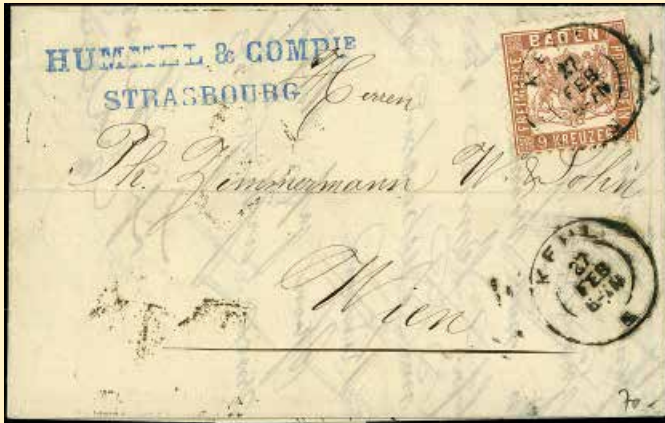 HUMMEL & COMPIE
STRASBOURG
Herren
Ph. Zimmermann W. & Sohn
Wien
BADEN
FREIMARKE
9 KREUZER
27
FEB
KEHL
27
FEB
70